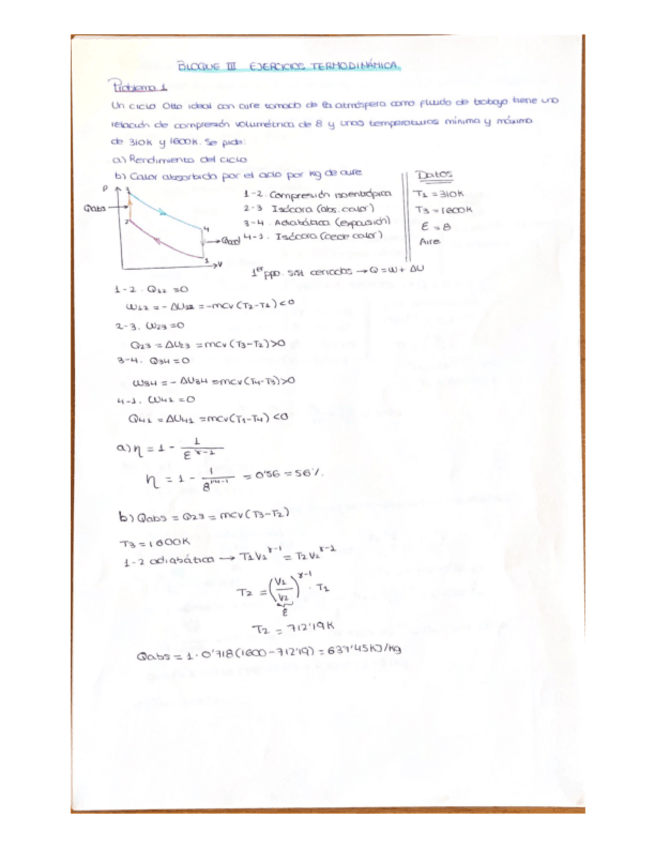 BLOQUE III EJERCICIOS TERMODINÁMICA.
Problema 1
Un ciclo Otto ideal con aire tomado de la atmósfera como fluido de trabajo tiene una
relación de compresión volumétrica de 8 y unas temperaturas mínima y máxima
de 310K y 1600K. Se pide:
a) Rendimiento del ciclo
b) Calor absorbido por el ciclo por kg de aire
Datos
T1 = 310K
T3 = 1600K
ε = 8
Aire
P
3
Qabs
2
4
Qced
1
V
1-2. Compresión isentrópica
2-3 Isócora (abs. calor)
3-4. Adiabática (expansión)
4-1. Isócora (cede calor)
1er ppo. sist cerrados → Q = W + ΔU
1-2. Q12 = 0
W12 = -ΔU12 = -mcv(T2-T1)<0
2-3. W23 = 0
Q23 = ΔU23 = mcv(T3-T2)>0
3-4. Q34 = 0
W34 = -ΔU34 = mcv(T4-T3)>0
4-1. W41 = 0
Q41 = ΔU41 = mcv(T1-T4)<0
a) η = 1 - 1/ε^γ-1
η = 1 - 1/8^1'4-1 = 0'56 = 56%.
b) Qabs = Q23 = mcv(T3-T2)
T3 = 1600K
1-2 adiabática → T1V1^γ-1 = T2V2^γ-1
T2 = (V1/V2)^γ-1 · T1
ε
T2 = 712'19K
Qabs = 1·0'718(1600-712'19) = 637'45KJ/kg